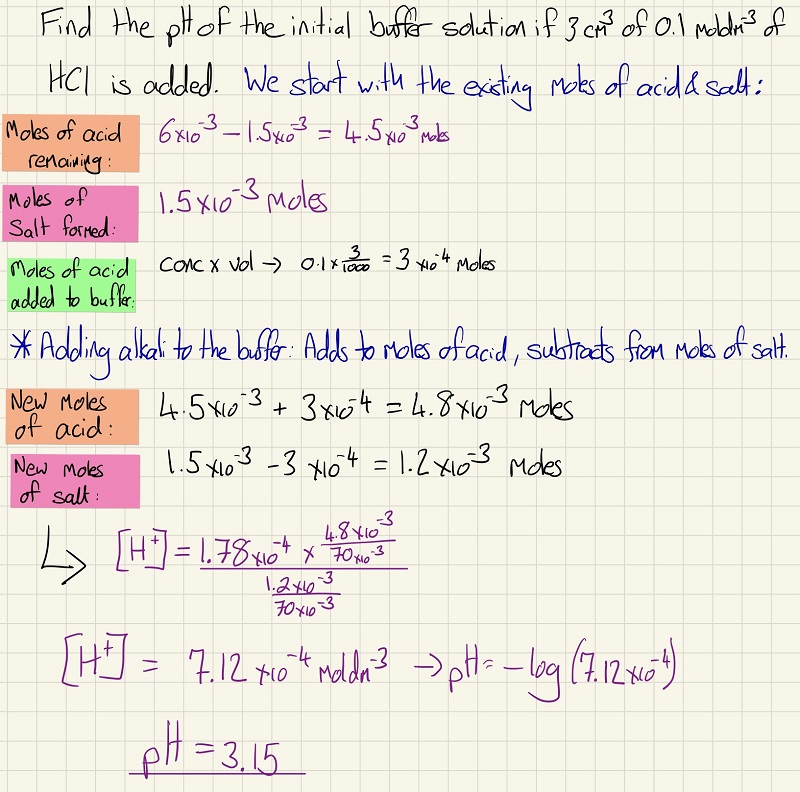 Find the pH of the initial buffer solution if 3cm³ of 0.1 moldm⁻³ of
HCl is added. We start with the existing moles of acid & salt:
Moles of acid remaining: 6x10⁻³ – 1.5x10⁻³ = 4.5x10⁻³ moles
Moles of Salt formed: 1.5x10⁻³ Moles
Moles of acid added to buffer: conc x vol → 0.1 x 3/1000 = 3x10⁻⁴ Moles
* Adding alkali to the buffer: Adds to moles of acid, subtracts from moles of salt.
New Moles of acid: 4.5x10⁻³ + 3x10⁻⁴ = 4.8x10⁻³ Moles
New Moles of salt: 1.5x10⁻³ - 3x10⁻⁴ = 1.2x10⁻³ Moles
↳ [H⁺] = 1.78x10⁻⁴ x 4.8x10⁻³/70x10⁻³
1.2x10⁻³/70x10⁻³
[H⁺] = 7.12x10⁻⁴ moldm⁻³ → pH = -log(7.12x10⁻⁴)
pH = 3.15